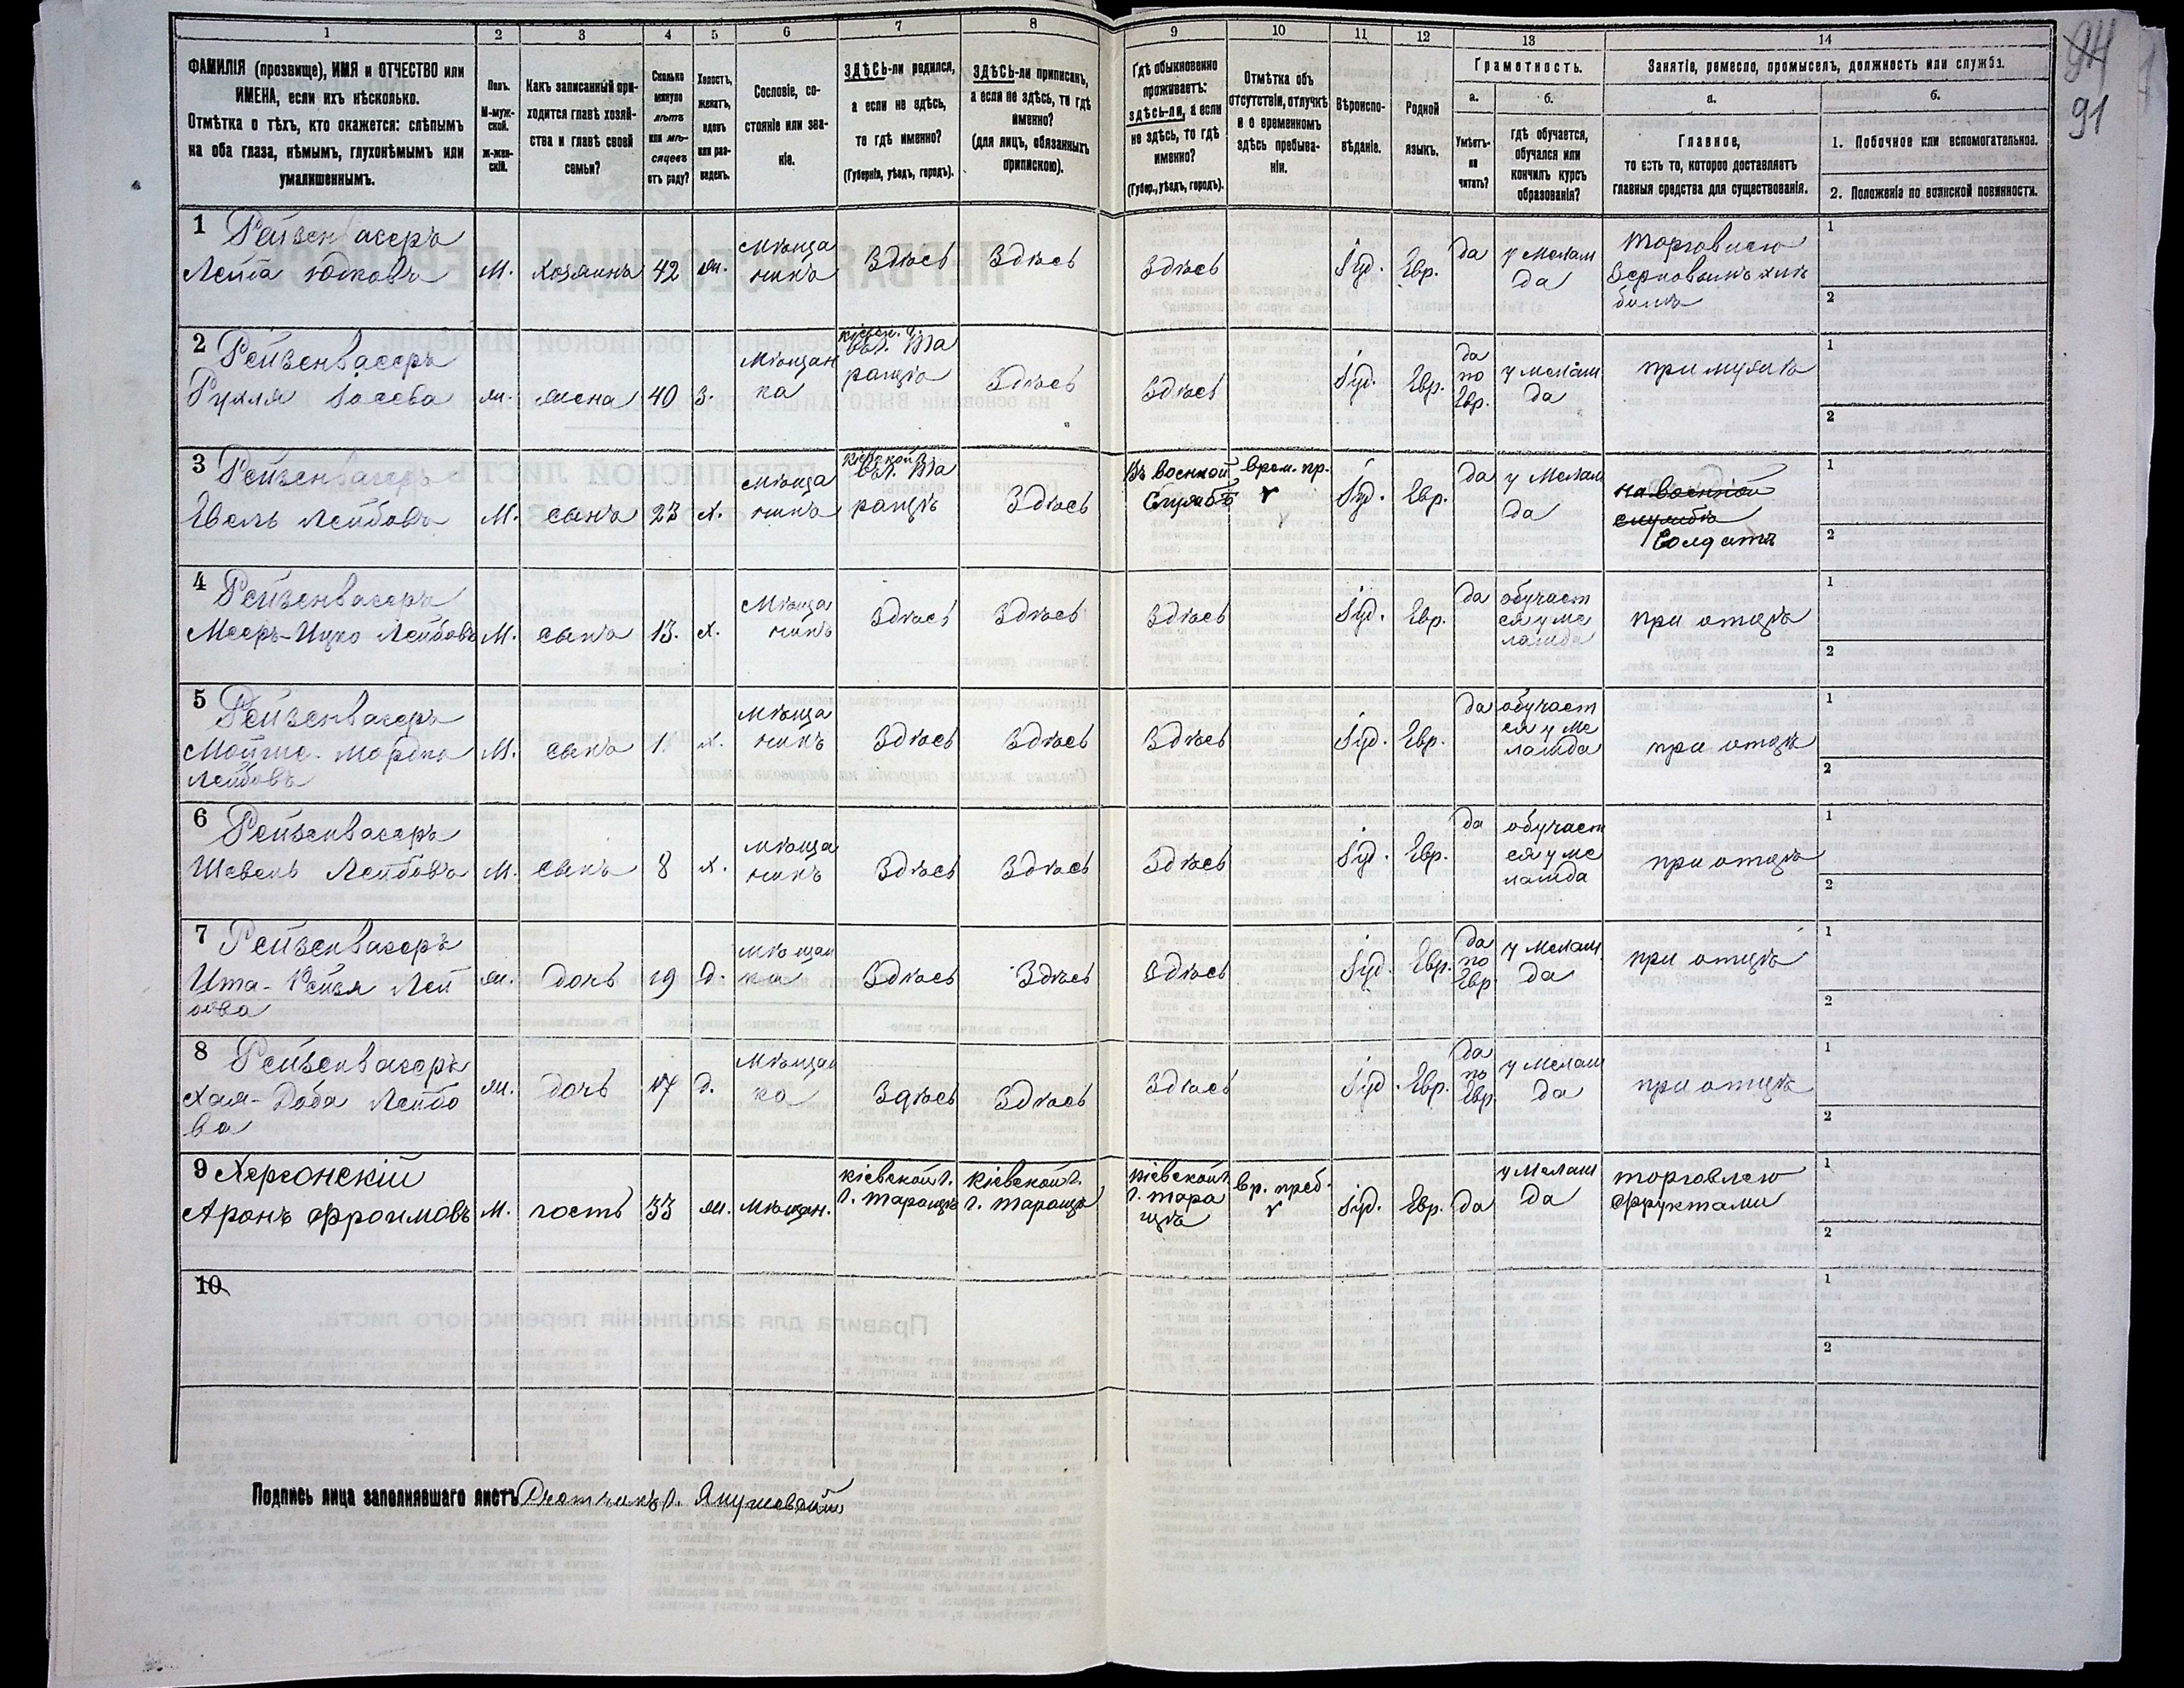 94
91
1 2 3 4 5 6 7 8 9 10 11 12 13 14
ФАМИЛІЯ (прозвище), ИМЯ и ОТЧЕСТВО или
ИМЕНА, если ихъ нѣсколько.
Отмѣтка о тѣхъ, кто окажется: слѣпымъ
на оба глаза, нѣмымъ, глухонѣмымъ или
умалишеннымъ.
Полъ.
М-муж-
ской.
ж-жен-
скій.
Какъ записанный при-
ходится главѣ хозяй-
ства и главѣ своей
семьи?
Сколько
минуло
лѣтъ
или мѣ-
сяцевъ
отъ роду?
Холостъ,
женатъ,
вдовъ
или раз-
веденъ.
Сословіе, со-
стояніе или зва-
ніе.
ЗДѢСЬ-ли родился,
а если не здѣсь,
то гдѣ именно?
(Губернія, уѣздъ, городъ).
ЗДѢСЬ-ли приписанъ,
а если не здѣсь, то гдѣ
именно?
(для лицъ, обязанныхъ
припискою).
Гдѣ обыкновенно
проживаетъ:
здѣсь-ли, а если
не здѣсь, то гдѣ
именно?
(Губер., уѣздъ, городъ).
Отмѣтка объ
отсутствіи, отлучкѣ
и о временномъ
здѣсь пребыва-
ніи.
Вѣроиспо-
вѣданіе.
Родной
языкъ.
Грамотность.
а.
Умѣетъ-
ли
читать?
б.
гдѣ обучается,
обучался или
кончилъ курсъ
образованія?
Занятіе, ремесло, промыселъ, должность или служба.
а.
Главное,
то есть то, которое доставляетъ
главныя средства для существованія.
б.
1. Побочное или вспомогательное.
2. Положеніе по воинской повинности.
1 Рейзенвасеръ
Лейба Юдковъ
М. хозяинъ 42 ж.
Мѣща
нинъ
Здѣсь Здѣсь Здѣсь Іуд. Евр. да
у Мелам
да
торговлею
зерновымъ хлѣ
бомъ
1
2
2 Рейзенвасеръ
Рухля
ж. жена 40 З.
Мѣщан
ка
кіевск. г.
въ г. Та
ращѣ
Здѣсь Здѣсь Іуд. Евр.
да
по
Евр.
у мелам
да
при мужѣ
1
2
3 Рейзенвасеръ
Евель Лейбовъ
М. сынъ 23 х.
Мѣща
нинъ
Кіевской г.
въ г. Та
ращѣ
Здѣсь
Въ военной
Службѣ
врем. пр.
Іуд. Евр. да
у Мелам
да
на военной
службѣ
Солдатъ
1
2
4 Рейзенвасеръ
Мееръ-Ицко Лейбовъ
М. сынъ 13. х.
Мѣща
нинъ
Здѣсь Здѣсь Здѣсь Іуд. Евр. да
обучает
ся у ме
ламда
при отцѣ
1
2
5 Рейзенвасеръ
Мойше-Мордко
Лейбовъ
М. сынъ х.
Мѣща
нинъ
Здѣсь Здѣсь Здѣсь Іуд. Евр. да
обучает
ся у Ме
ламда
при отцѣ
1
2
6 Рейзенвасеръ
Шевель Лейбовъ
М. сынъ 8 х.
Мѣща
нинъ
Здѣсь Здѣсь Здѣсь Іуд. Евр. да
обучает
ся у ме
ламда
при отцѣ
1
2
7 Рейзенвасеръ
Ита-Рейзя Лей
бова
ж. дочь 19 д.
Мѣщан
ка
Здѣсь Здѣсь Здѣсь Іуд. Евр.
да
по
Евр
у Мелам
да
при отцѣ
1
2
8 Рейзенвасеръ
Хая-Доба Лейбо
ва
ж. дочь 17 д.
Мѣщан
ка
Здѣсь Здѣсь Здѣсь Іуд. Евр.
да
по
Евр
у Мелам
да
при отцѣ
1
2
9 Херсонскій
Аронъ Фроимовъ
М. гость 33 ж. Мѣщан.
Кіевской г.
г. Таращѣ
Кіевской г.
г. Таращѣ
Кіевской г.
г. тара
щѣ
вр. преб.
Іуд. Евр. да
у Мелам
да
торговлею
фруктами
1
2
10
1
2
Подпись лица заполнявшаго листъ Счетчикъ Г. Янушевскій